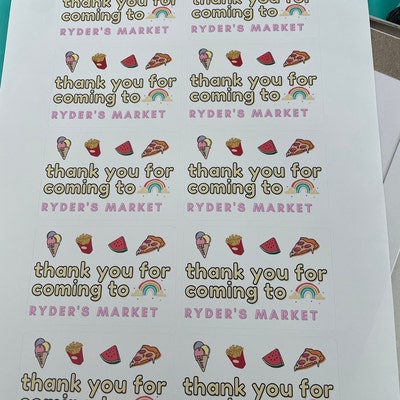 thank you for
coming to
RYDER'S MARKET
thank you for
coming to
RYDER'S MARKET
thank you for
coming to
RYDER'S MARKET
thank you for
coming to
RYDER'S MARKET
thank you for
coming to
RYDER'S MARKET
thank you for
coming to
RYDER'S MARKET
thank you for
coming to
RYDER'S MARKET
thank you for
coming to
RYDER'S MARKET
thank you for
coming to
thank you for
coming to